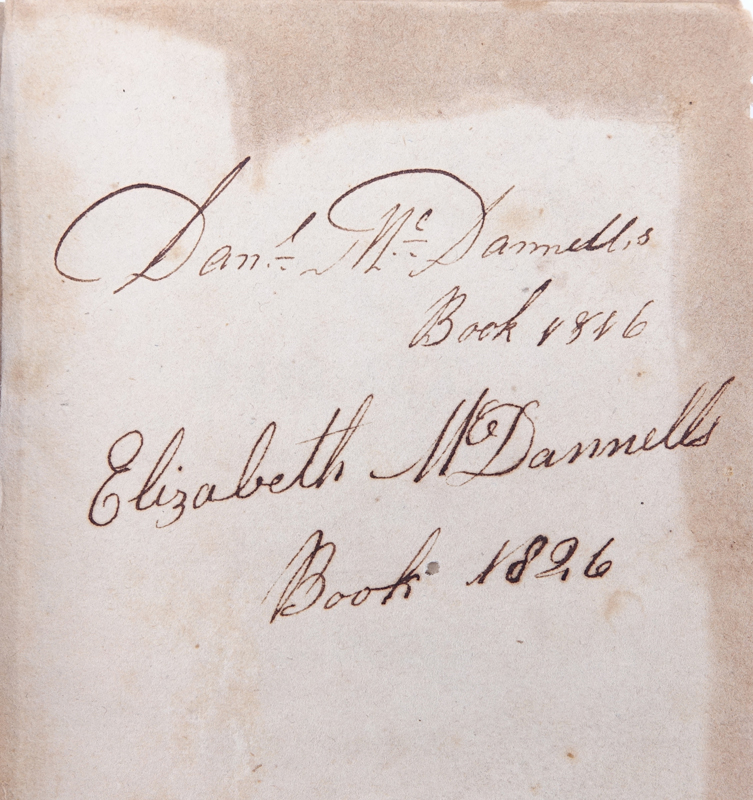 Danl. Mc. Dannells
Book 1816
Elizabeth McDannells
Book 1826